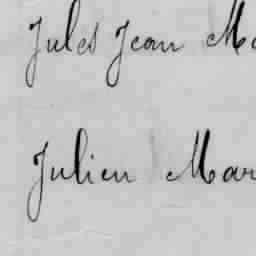 Jules Jean Ma
Julien Mar